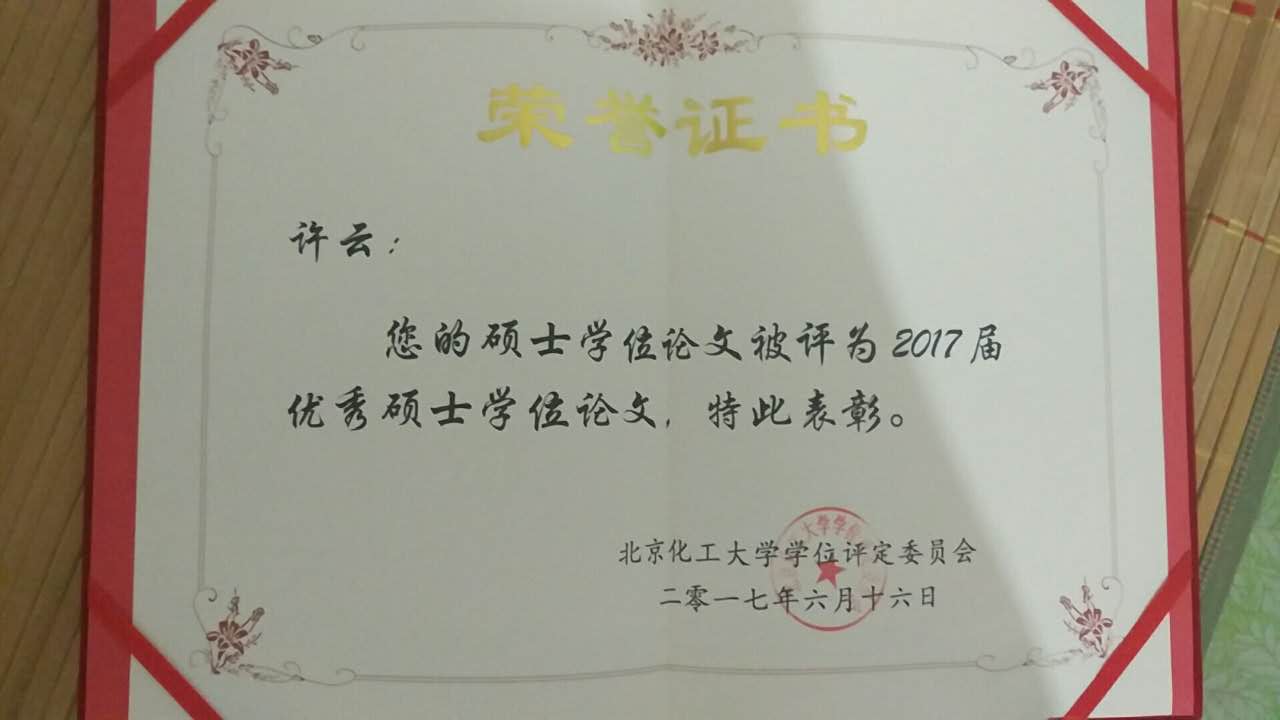 荣誉证书
许云：
您的硕士学位论文被评为2017届
优秀硕士学位论文，特此表彰。
北京化工大学学位评定委员会
二零一七年六月十六日